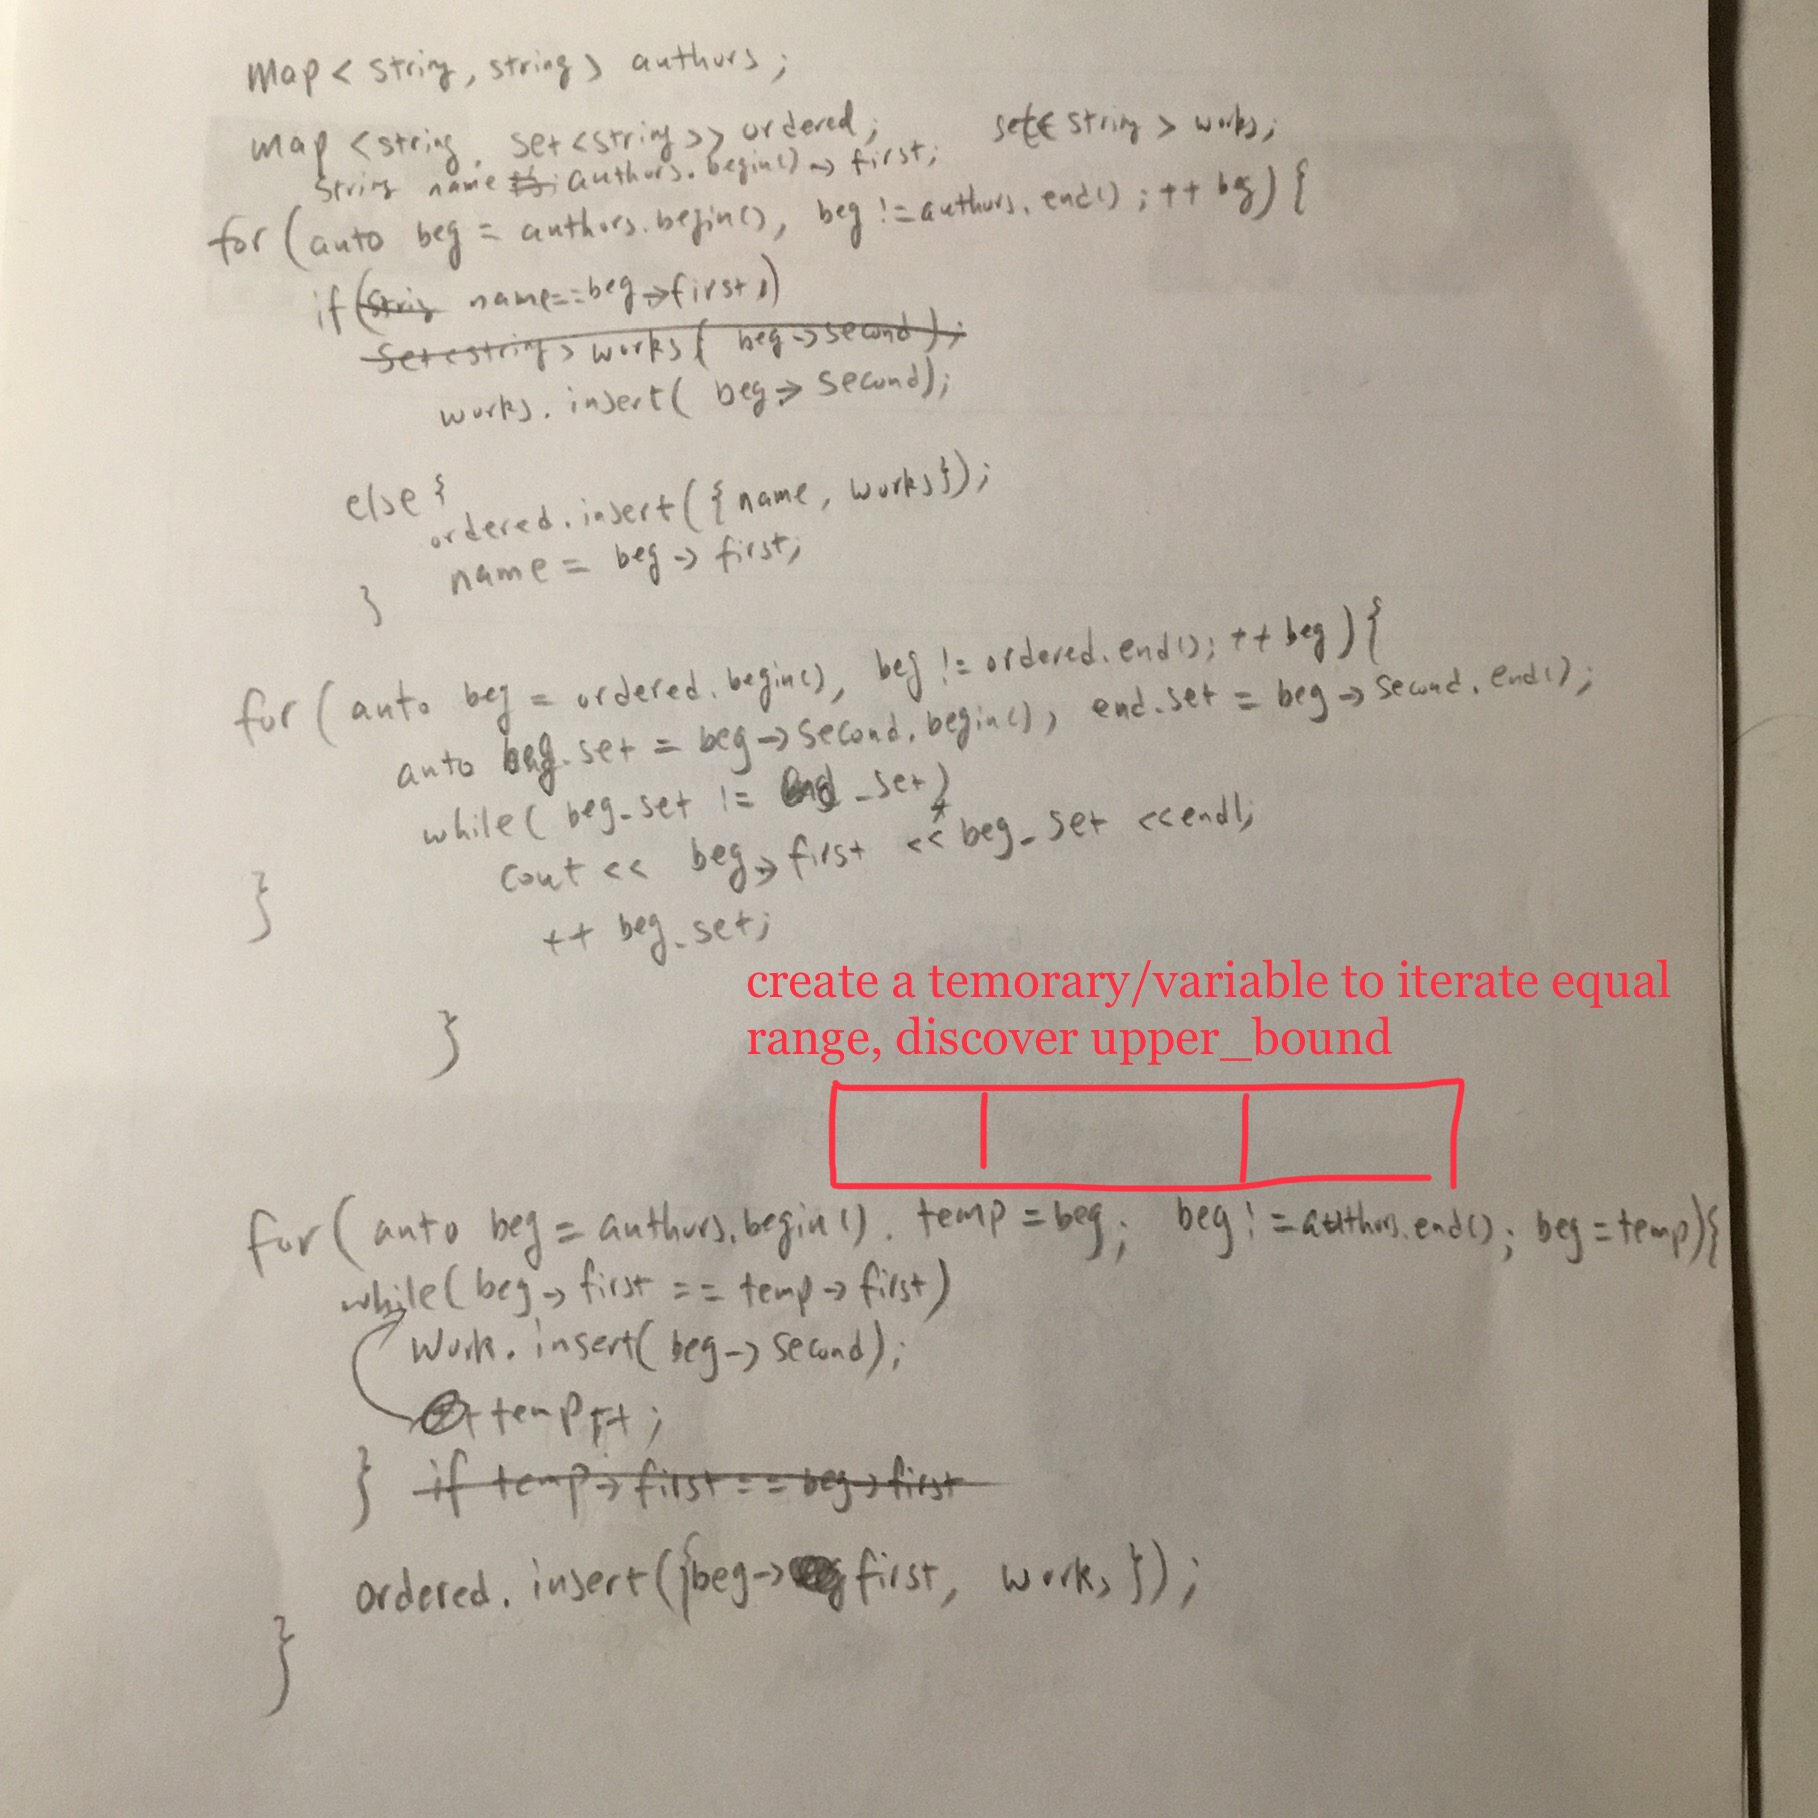 map<string, string> authors;
map<string, set<string>> ordered; set<string> works;
string name = authors.begin()->first;
for(auto beg = authors.begin(), beg != authors.end(); ++beg){
if(string name==beg->first;)
set<string> works(beg->second);
works.insert(beg->second);
else{
ordered.insert({name, works});
name = beg->first;
}
for(auto beg = ordered.begin(), beg != ordered.end(); ++beg){
auto beg_set = beg->second.begin(), end_set = beg->second.end();
while(beg_set != end_set)
cout << beg->first << *beg_set << endl;
++beg_set;
}
}
create a temorary/variable to iterate equal
range, discover upper_bound
for(auto beg = authors.begin(), temp = beg; beg != authors.end(); beg = temp){
while(beg->first == temp->first)
work.insert(beg->second);
temp++;
} if temp->first == beg->first
ordered.insert({beg->first, works});
}